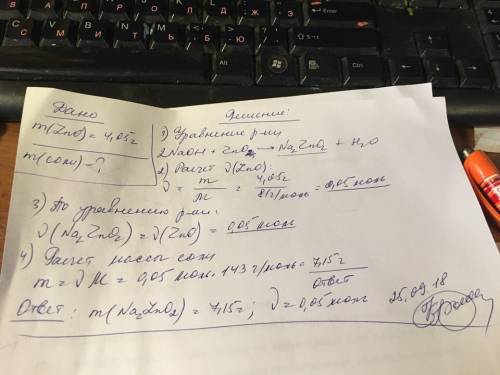 Дано
m(ZnO) = 4,05г
m(соли) - ?
Решение:
1) Уравнение р-ии
2NaOH + ZnO → Na₂ZnO₂ + H₂O
2) Расчет ν(ZnO):
ν = m/M = 4,05г / 81г/моль = 0,05 моль
3) По уравнению р-ии:
ν(Na₂ZnO₂) = ν(ZnO) = 0,05 моль
4) Расчет массы соли
m = νM = 0,05 моль · 143 г/моль = 7,15г
ответ
Ответ: m(Na₂ZnO₂) = 7,15г; ν = 0,05 моль
25.09.18
Enter
Shift
Alt
Ctrl